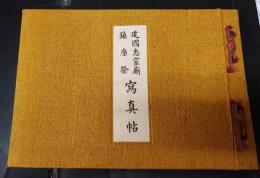 建國忠靈廟
鎭座祭
寫真帖